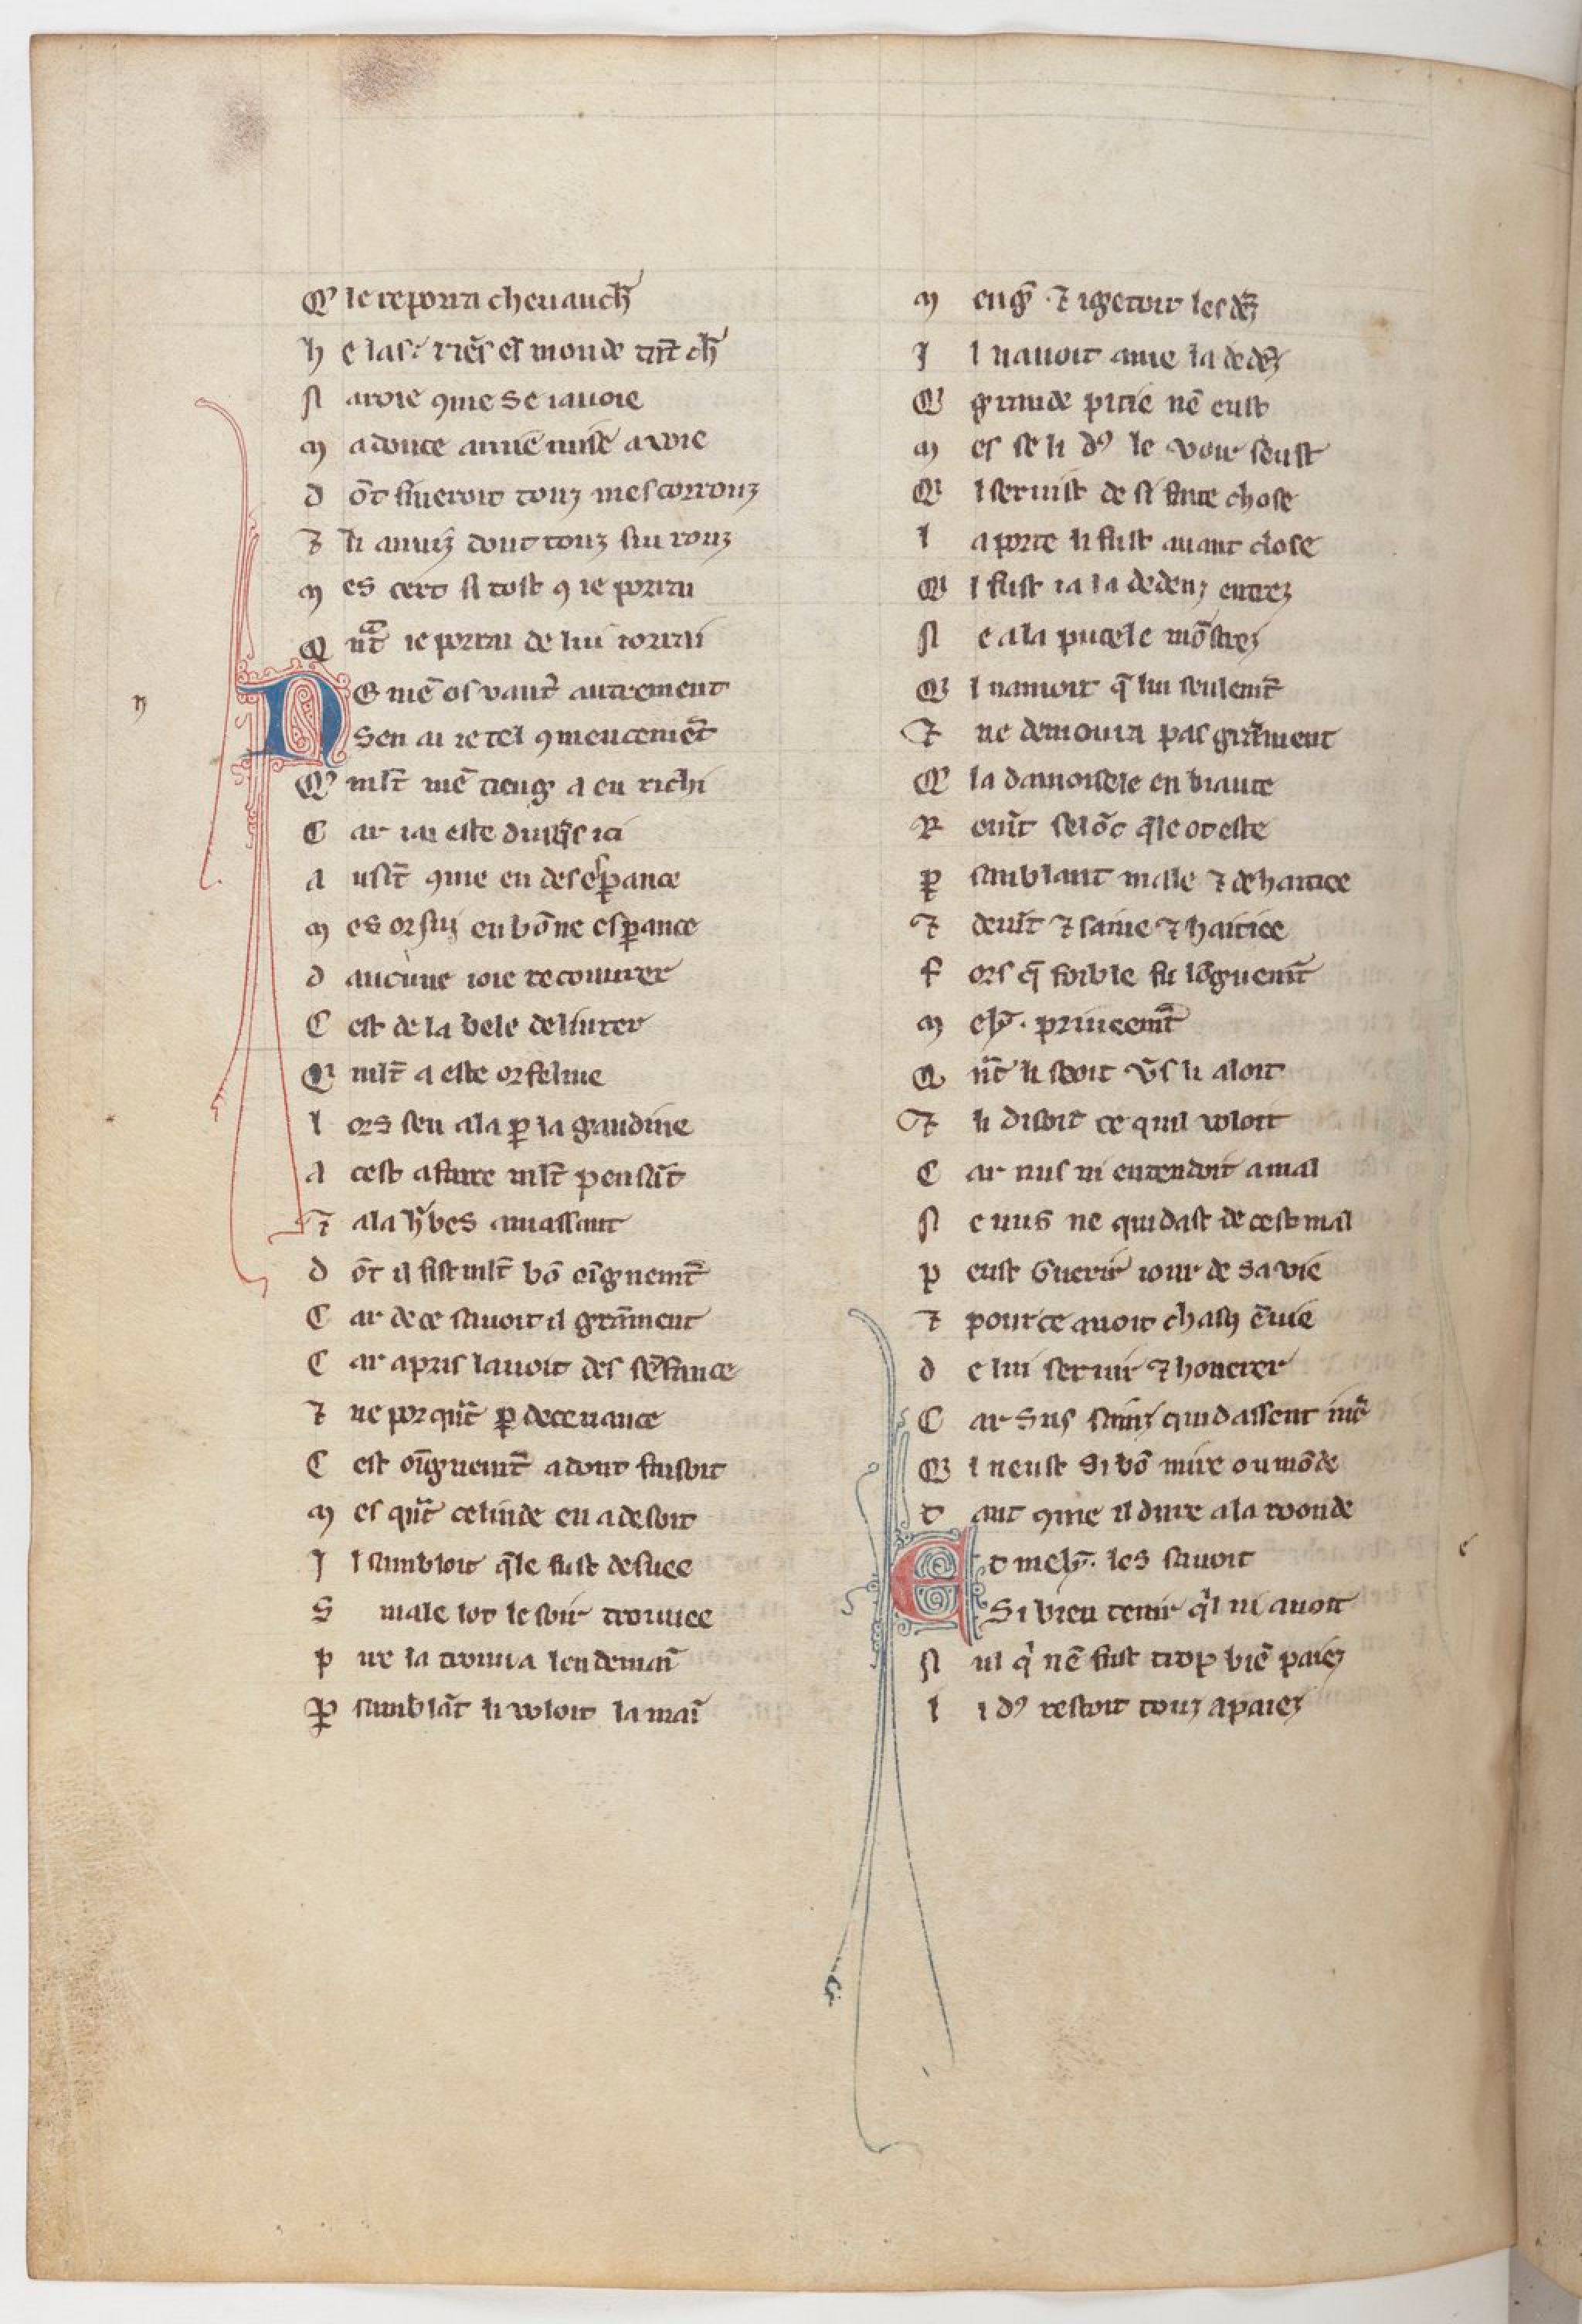 Q le reporra cheuauch̄
h e las? riēs el monde tāt ch̄
N auoie ꝯme se iauoie
M a douce amie mise a uoie
D ōt fineroit touz mes corrouz
⁊ li anuiz dont touz sui rouz
M es cert si tost ꝯ ie porrai
Q nt̄ ie porrai de lui iorrai
N
DE mē os vant̄ autrement
Sen ai ie tel ꝯmencemēt
Q mlt̄ mē tieng a en richi
C ar iai este duiq̄s ici
A uslt̄ ꝯme en desesꝑance
M es or sui en bōne esꝑance
D aucune ioie recouurer
C est de la bele deliurer
Q mlt̄ a este orfeline
L ors sen ala ꝑ la gaudine
A cest afaire mlt̄ pensāt
⁊ ala h̄bes amassant
D ōt il fist mlt̄ bō oīgnemt̄
C ar de ce sauoit il grāment
C ar apris lauoit des sēfance
⁊ ne por qūt ꝑ deceuance
C est oīgnemt̄ a dont faisoit
M es qn̄t celinde en adesoit
I l sambloit q̄le fust desuee
S male lot le soir trouuee
P ire la trouua lendemaī
Ꝑ samblāt li uoloit la maī
M enḡ ⁊ igetoit les dēz
I l nauoit ame la dedēz
Q grande pitie nē eust
M es se li dꝰ le voir seust
Q l seruist de si faite chose
L a porte li fust auant close
Q l fust ia la dedenz entrez
N e a la pucele mōstrez
Q l namoit q̄ lui seulemt̄
⁊ ne demoura pas grāment
Q la damoisele en biaute
R euīt selōc q̄le ot este
Ꝑ samblant male ⁊ dehaitiee
⁊ deuīt ⁊ saine ⁊ haitiee
F ors q̄ foible fu lōguemt̄
M elẏ. priueemt̄
Q n̄t li seoit v̄s li aloit
⁊ li disoit ce quil uoloit
C ar nus ni entendoit a mal
N e nus ne quidast de cest mal
P eust Guerir iour de sa vie
⁊ pour ce auoit chasꝯ ēuie
D e lui seruir ⁊ honerer
C ar Sus sainz quidassent iurē
Q l neust Si bō mire ou mōde
T ant ꝯme il dure a la roonde
Et melẏ. les sauoit
Si bien tenir q̄l ni auoit
e
N ul q̄ nē fust trop biē paiez
L i dꝰ restoit touz apaiez